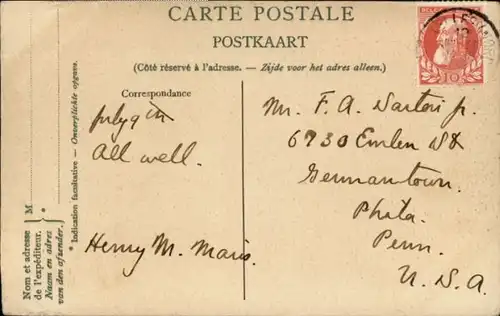 CARTE POSTALE
POSTKAART
(Côté réservé à l'adresse. — Zijde voor het adres alleen.)
Correspondance
All well.
Henry M. Maris.
Mr. F. A. Sartori Jr.
6730 Emlen St
Germantown.
Phila.
Penn.
U. S. A.
* Indication facultative — Onverplichte opgave.
M *
Nom et adresse
de l'expéditeur.
Naam en adres
van den afzender.
10